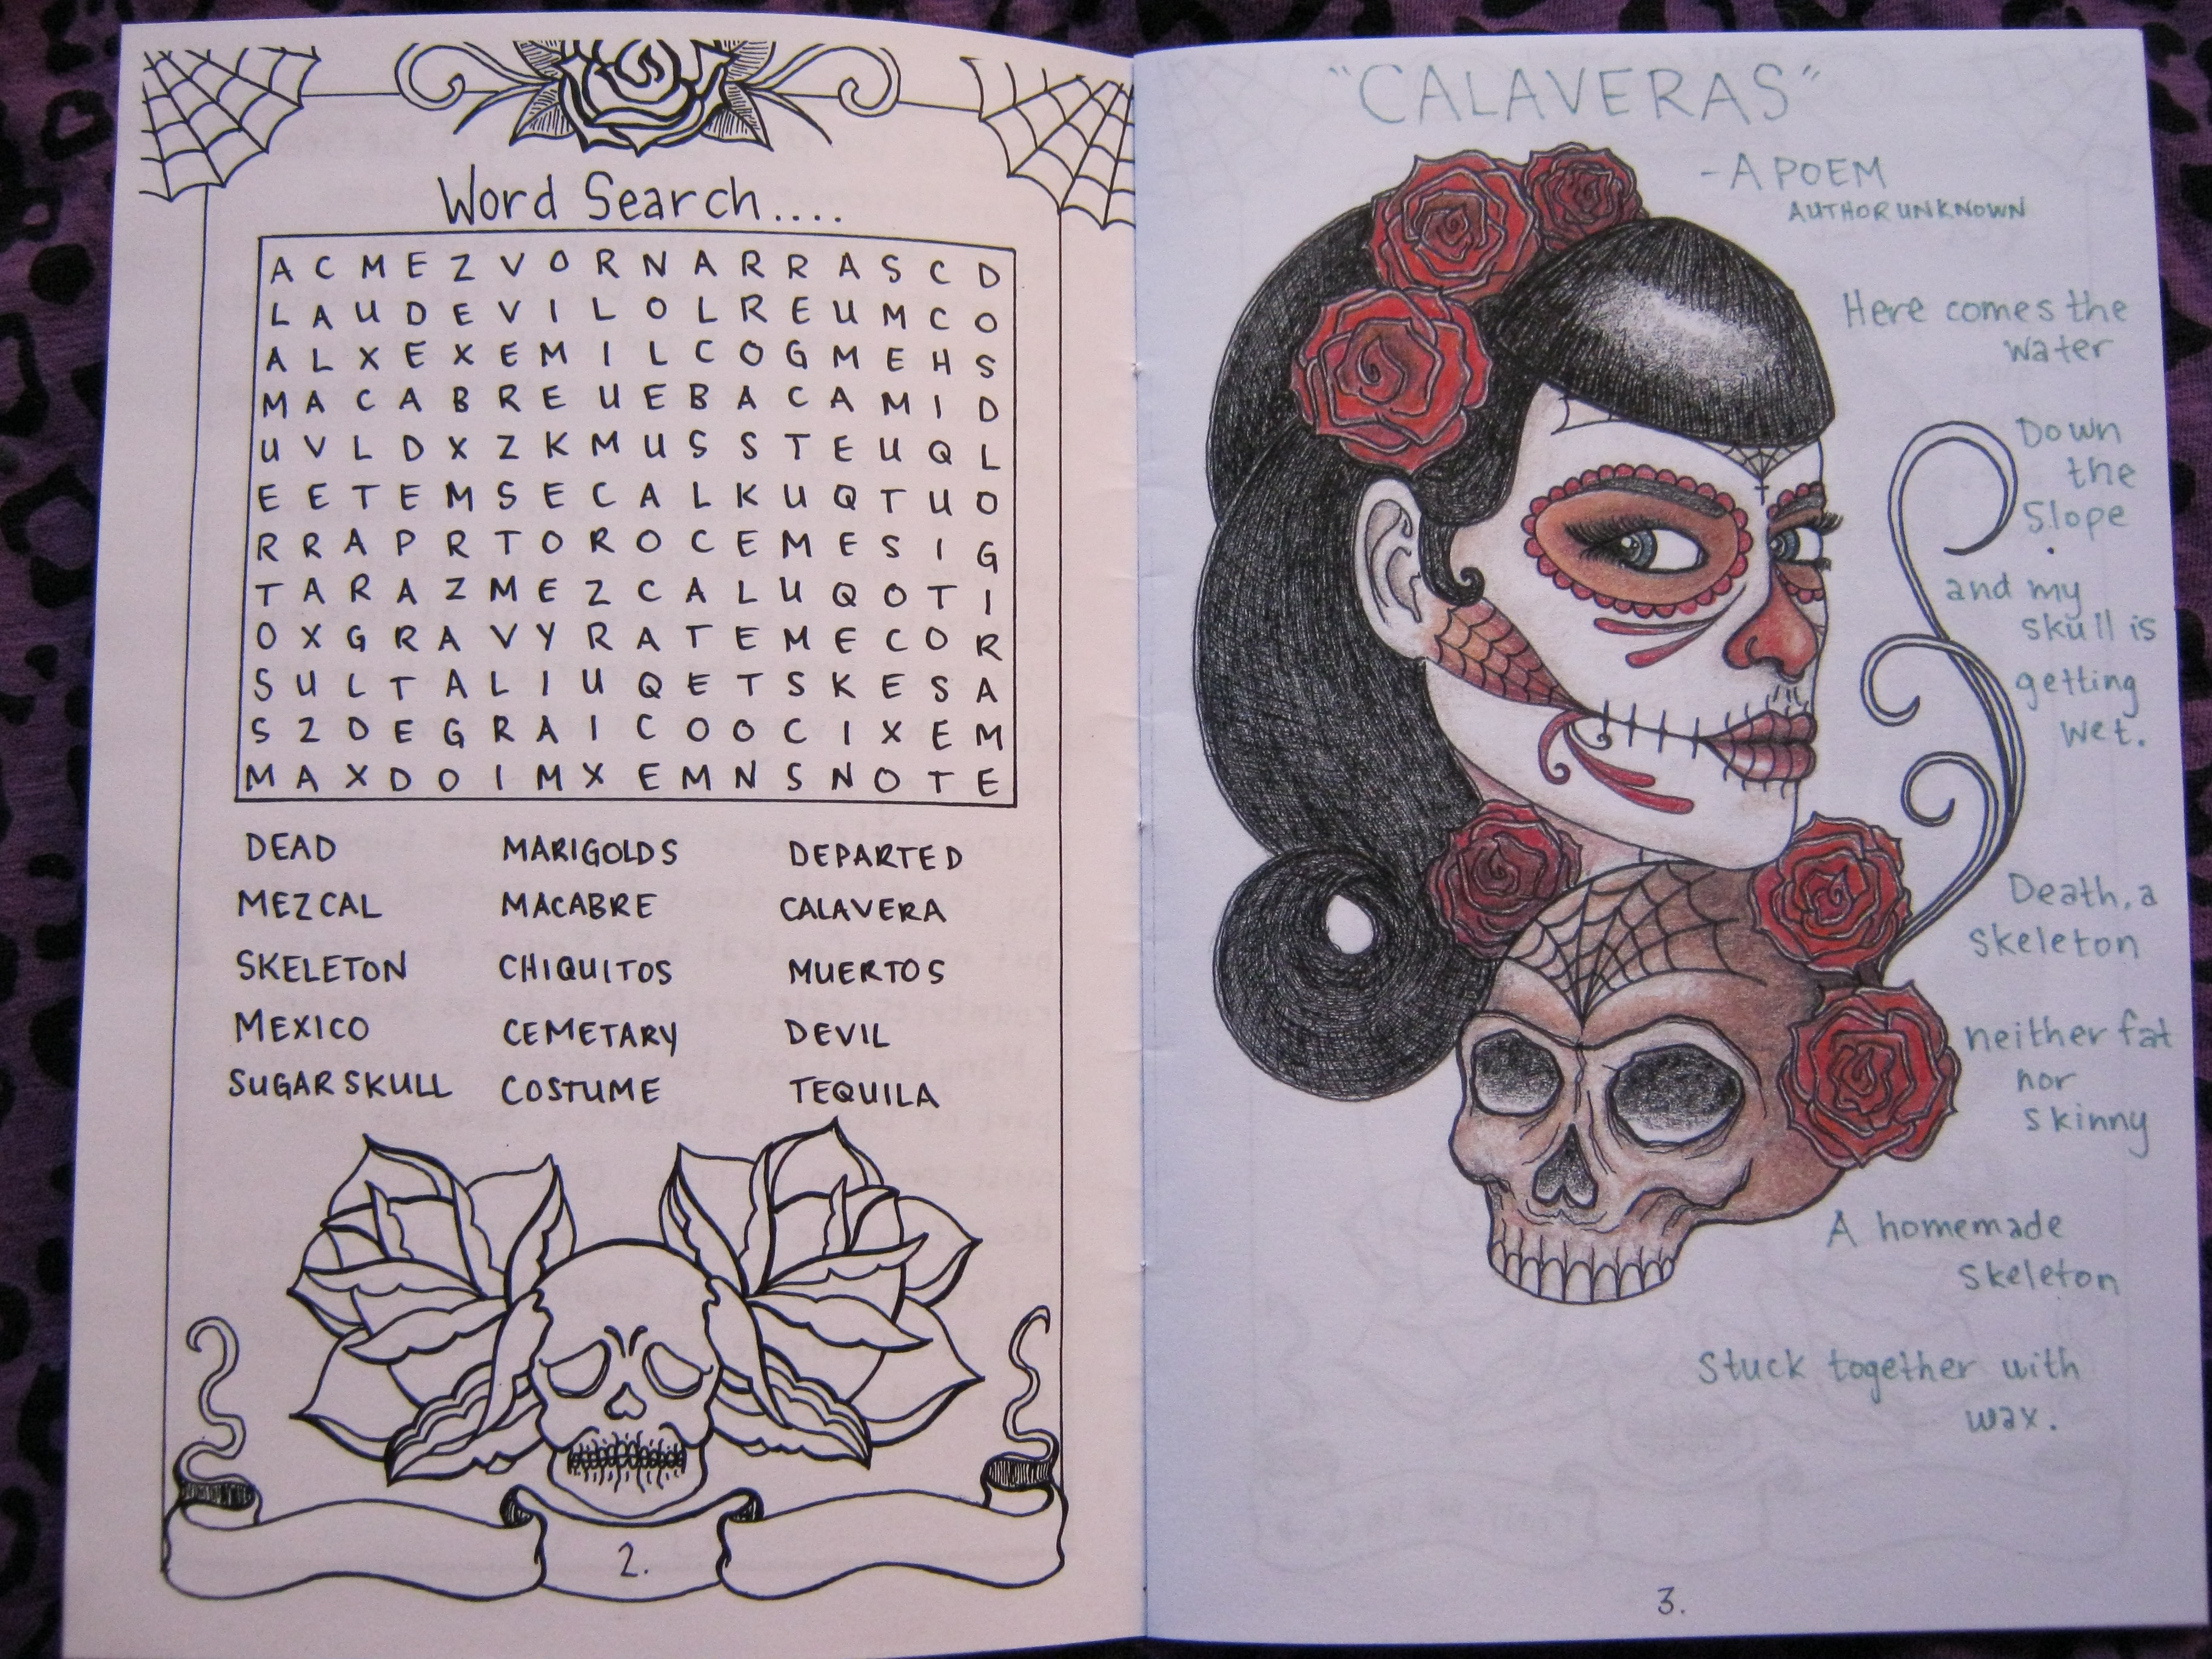 Word Search....
A C M E Z V O R N A R R A S C D
L A U D E V I L O L R E U M C O
A L X E X E M I L C O G M E H S
M A C A B R E U E B A C A M I D
U V L D X Z K M U S S T E U Q L
E E T E M S E C A L K U Q T U O
R R A P R T O R O C E M E S I G
T A R A Z M E Z C A L U Q O T I
O X G R A V Y R A T E M E C O R
S U L T A L I U Q E T S K E S A
S Z D E G R A I C O O C I X E M
M A X D O I M X E M N S N O T E
DEAD MARIGOLDS DEPARTED
MEZCAL MACABRE CALAVERA
SKELETON CHIQUITOS MUERTOS
MEXICO CEMETARY DEVIL
SUGAR SKULL COSTUME TEQUILA
2.
"CALAVERAS"
- A POEM
AUTHOR UNKNOWN
Here comes the
water
Down
the
Slope
and my
skull is
getting
wet.
Death, a
skeleton
neither fat
nor
skinny
A homemade
skeleton
Stuck together with
wax.
3.